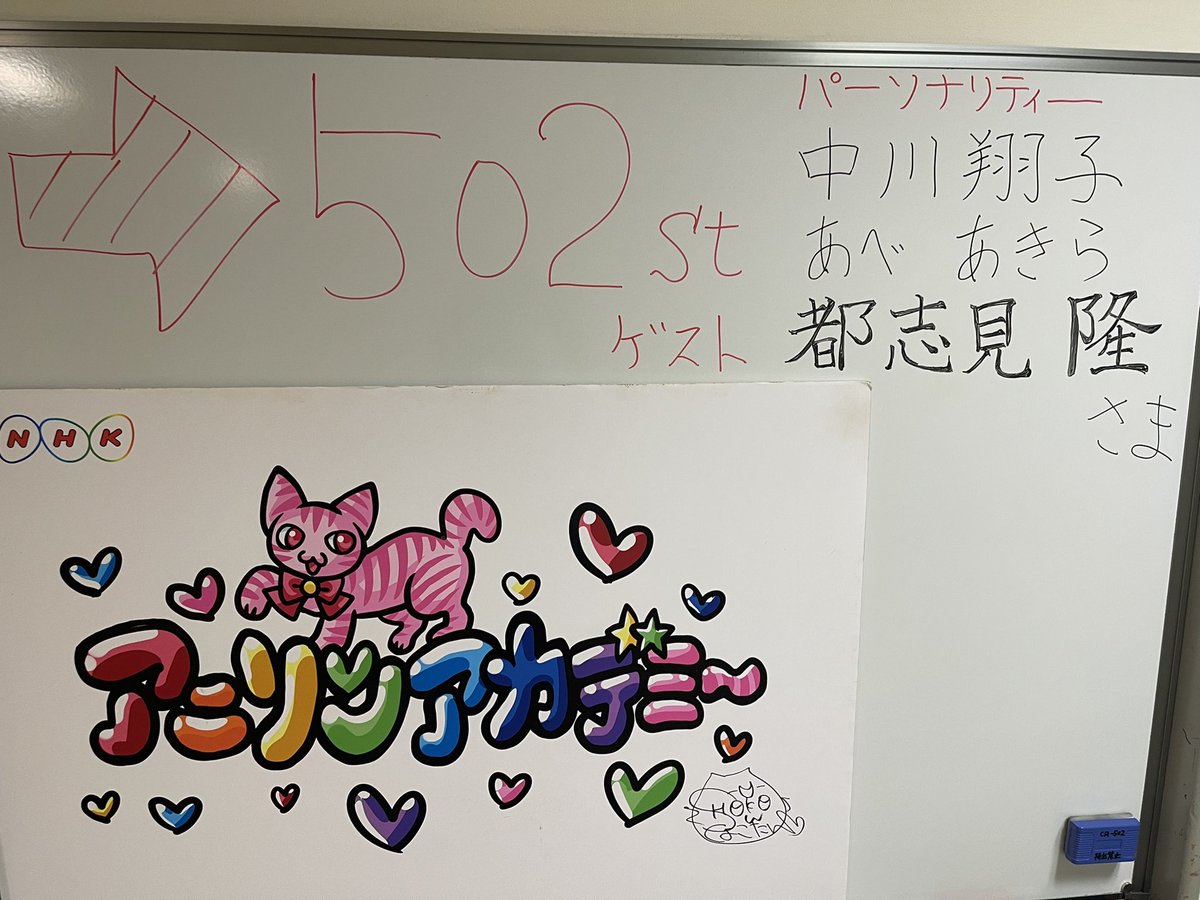 502st
パーソナリティー
中川翔子
あべ あきら
ゲスト 都志見 隆
さま
NHK
アニソンアカデミー
CR-502
持出禁止